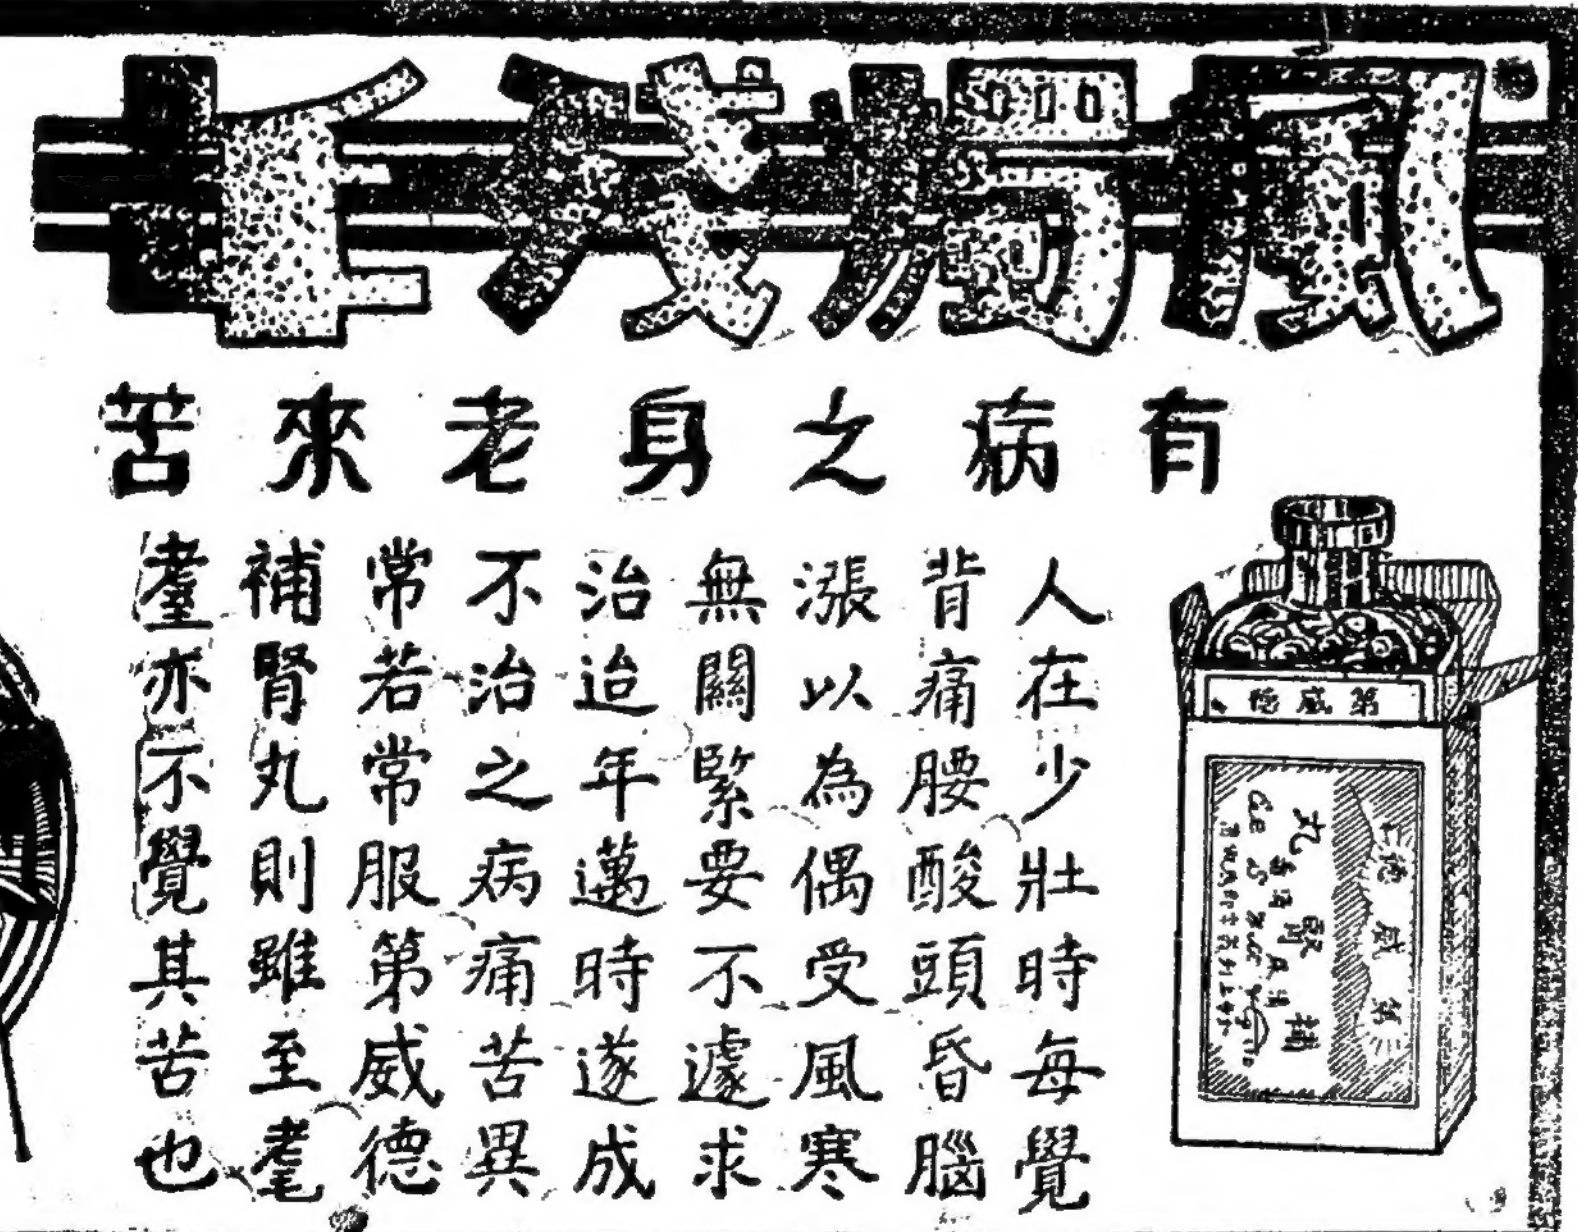 風燭殘年
有病之身老來苦
人在少壯時每覺
背痛腰酸頭昏腦
漲以為偶受風寒
無關緊要不遽求
治迨年邁時遂成
不治之病痛苦異
常若常服第威德
補腎丸則雖至耄
耋亦不覺其苦也
第威德
第威德
補腎丸